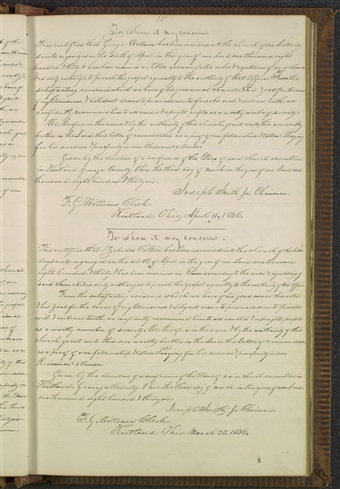 To whom it may concern.
This certifies that George has been received into the church of the Latter
day Saints organized on the sixth of April in the year of our Lord one thousand eight
hundred & thirty & has been ordained an Elder according to the rules & regulations of said church
& is duly authorized to preach the gospel agreeably to the authority of that office. From the
satisfactory evidence which we have of his good moral character & his zeal for the cause
of righteousness & diligent desire to persuade men to forsake evil & embrace truth we
confidently recommend him to all candid & upright people as a worthy member of society.
We therefore in the name & by the authority of this church grant unto this our worthy
brother in the Lord this letter of commendation as a proof of our fellowship & esteem Praying
for his success & prosperity in our Redeemer's Cause.
Given by the direction of a conference of the Elders of said church assembled
in Kirtland Geauga County, Ohio, the third day of March in the year of our Lord one
thousand eight hundred & thirty six.
Joseph Smith Jr. Chairman
F. G. Williams Clerk.
Kirtland, Ohio, April 11, 1836.
To whom it may concern.
This certifies that has been received into the church of the latter
day saints organized on the sixth of April in the year of our Lord one thousand
eight hundred & thirty & has been ordained an Elder according to the rules & regulations of
said church & is duly authorized to preach the gospel agreeably to the authority of that office
From the satisfactory evidence which we have of his good moral character
& his zeal for the cause of righteousness & diligent desire to persuade men to forsake
evil & embrace truth we confidently recommend him to all candid & upright people
as a worthy member of society. We therefore in the name & by the authority of this
church grant unto this our worthy brother in the Lord this letter of commendation
as a proof of our fellowship & esteem Praying for his success & prosperity in our
Redeemer's Cause.
Given by the direction of a conference of the Elders of said church assembled in
Kirtland, Geauga County Ohio the third day of March in the year of our Lord one
thousand eight hundred & thirty six.
Joseph Smith Jr. Chairman
F. G. Williams Clerk.
Kirtland Ohio March 30, 1836.